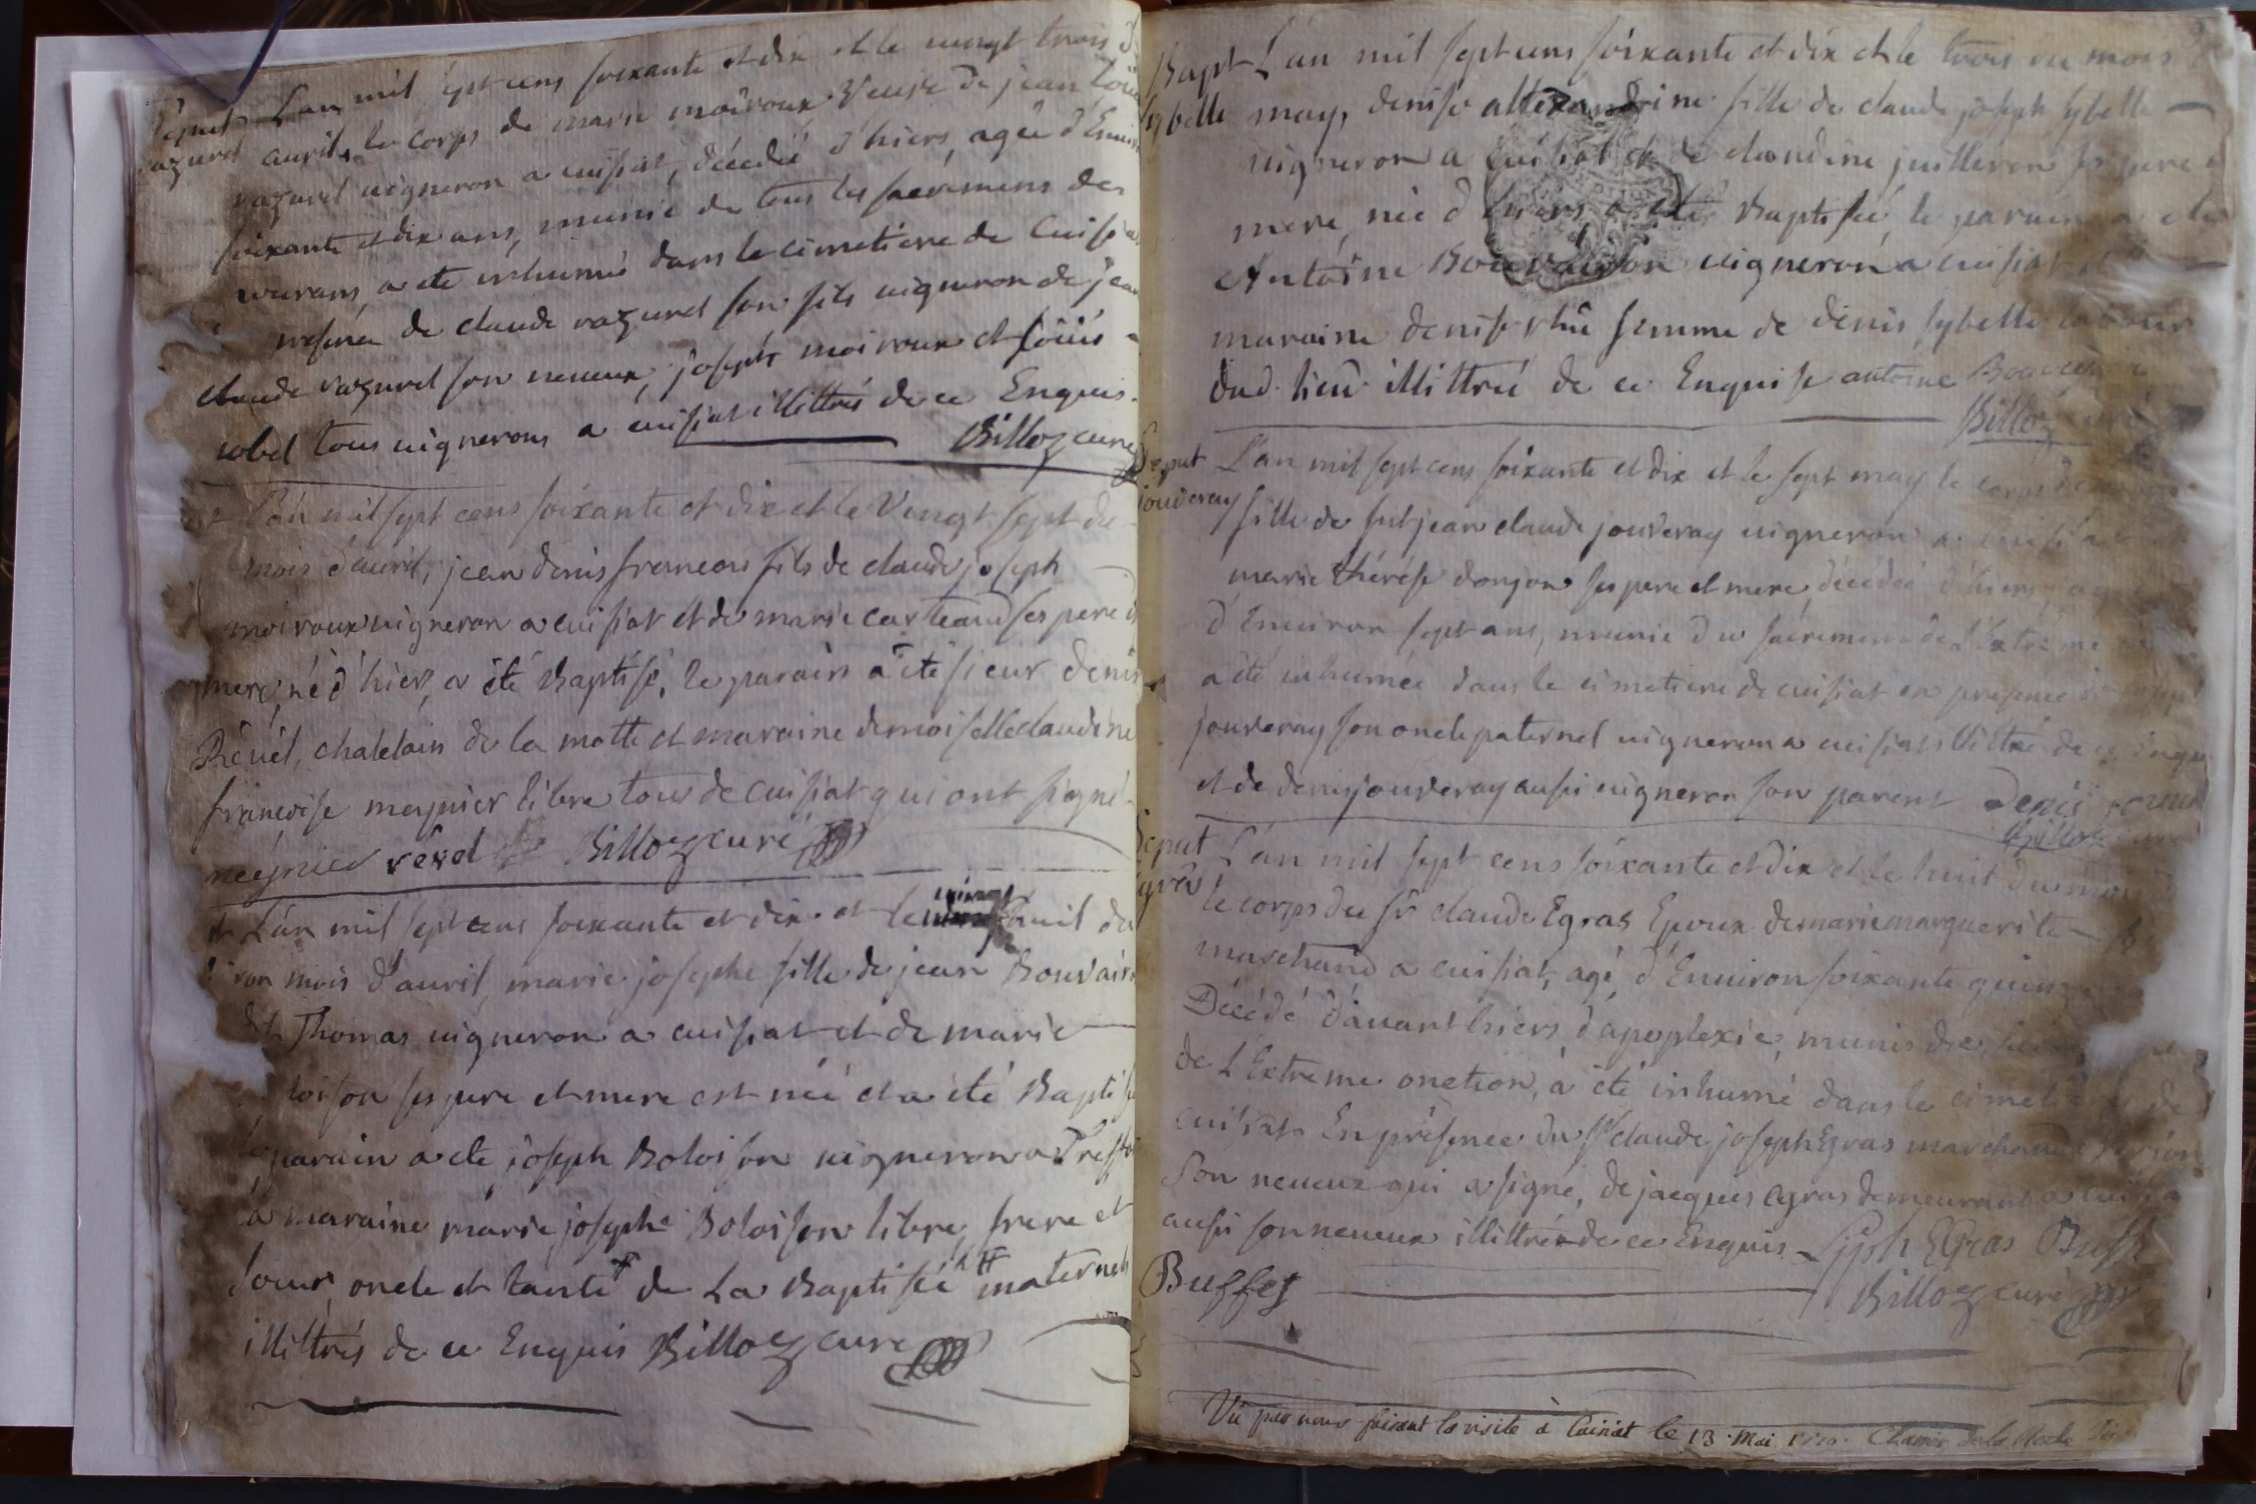 L'an mil sept cens soixante et dix et le vingt trois
avril, le corps de marie moiroux veuve de jean
vazurel vigneron a cuisiat, décédée d'hiers, agée d'Envir
soixante et dix ans, munie de tous les sacremens des
mourans, a ete inhumée dans le cimetiere de Cuisia
presence de claude vazurel son fils vigneron de jean
claude vazurel son neveux, joseph moiroux et loüis
tous vignerons a cuisiat illittrés de ce Enquis.
Billoz curé
L'an mil sept cens soixante et dix et le Vingt sept du
mois d'avril, jean denis francois fils de claude joseph
moiroux vigneron a cuisiat et de marie carteaud ses pere et
mere, né d'hier, a été Baptisé, le parain a été sieur denis
Révél, chatelain de la motte et maraine demoiselle claudine
francoise meynier libre tous de cuisiat qui ont signé
meynier révél Billoz curé
L'an mil sept cens soixante et dix et le vingt huit du
mois d'avril, marie josephe fille de jean Bouvair
dit Thomas vigneron a cuisiat et de marie
loison ses pere et mere est née et a été Baptisé
le parain a ete joseph Boloison vigneron a
la maraine marie josephe Boloison libre, frere et
soeur, oncle et tante de La Baptisée maternels
illittrés de ce Enquis Billoz curé
Bapt L'an mil sept cens soixante et dix et le trois du mois
sybelle may, denise allexandrine fille de claude joseph sybelle
vigneron a cuisiat et de claudine juilleron ses pere
mere, née d'hiers a été Baptisée, le parain a ete
Antoine Bouvairon vigneron a cuisiat et
maraine denise femme de denis sybelle
dud. lieu illittrée de ce Enquise antoine
Billoz
L'an mil sept cens soixante et dix et le sept may le corps
jouveray fille de fut jean claude jouveray vigneron a
marie thérése donjon ses pere et mere, décédée d'hiers,
d'Environ sept ans, munie du sacrement de l'Extreme
a été inhumée dans le cimetiere de cuisiat en presence
jouveray son oncle paternel vigneron a cuisiat illittré de ce Enqu
et de denis jouveray aussi vigneron son parent Denis
Billoz
L'an mil sept cens soixante et dix et le huit du mois
le corps du sr claude Egras Epoux de marie marguerite
marchand a cuisiat, agé d'Environ soixante quinze
Décédé d'avant hiers d'apoplexie, munis du
de l'Extreme onction, a été inhumé dans le cimetiere de
cuisiat En présence du sr claude joseph Egras marchand
son neveux qui a signé, de jacques egras demeurant a cuisia
aussi son neveux illittré de ce Enquis Jjph EGras
Buffet Billoz curé
Vu par nous faisant la visite à Cuisiat le 13 Mai